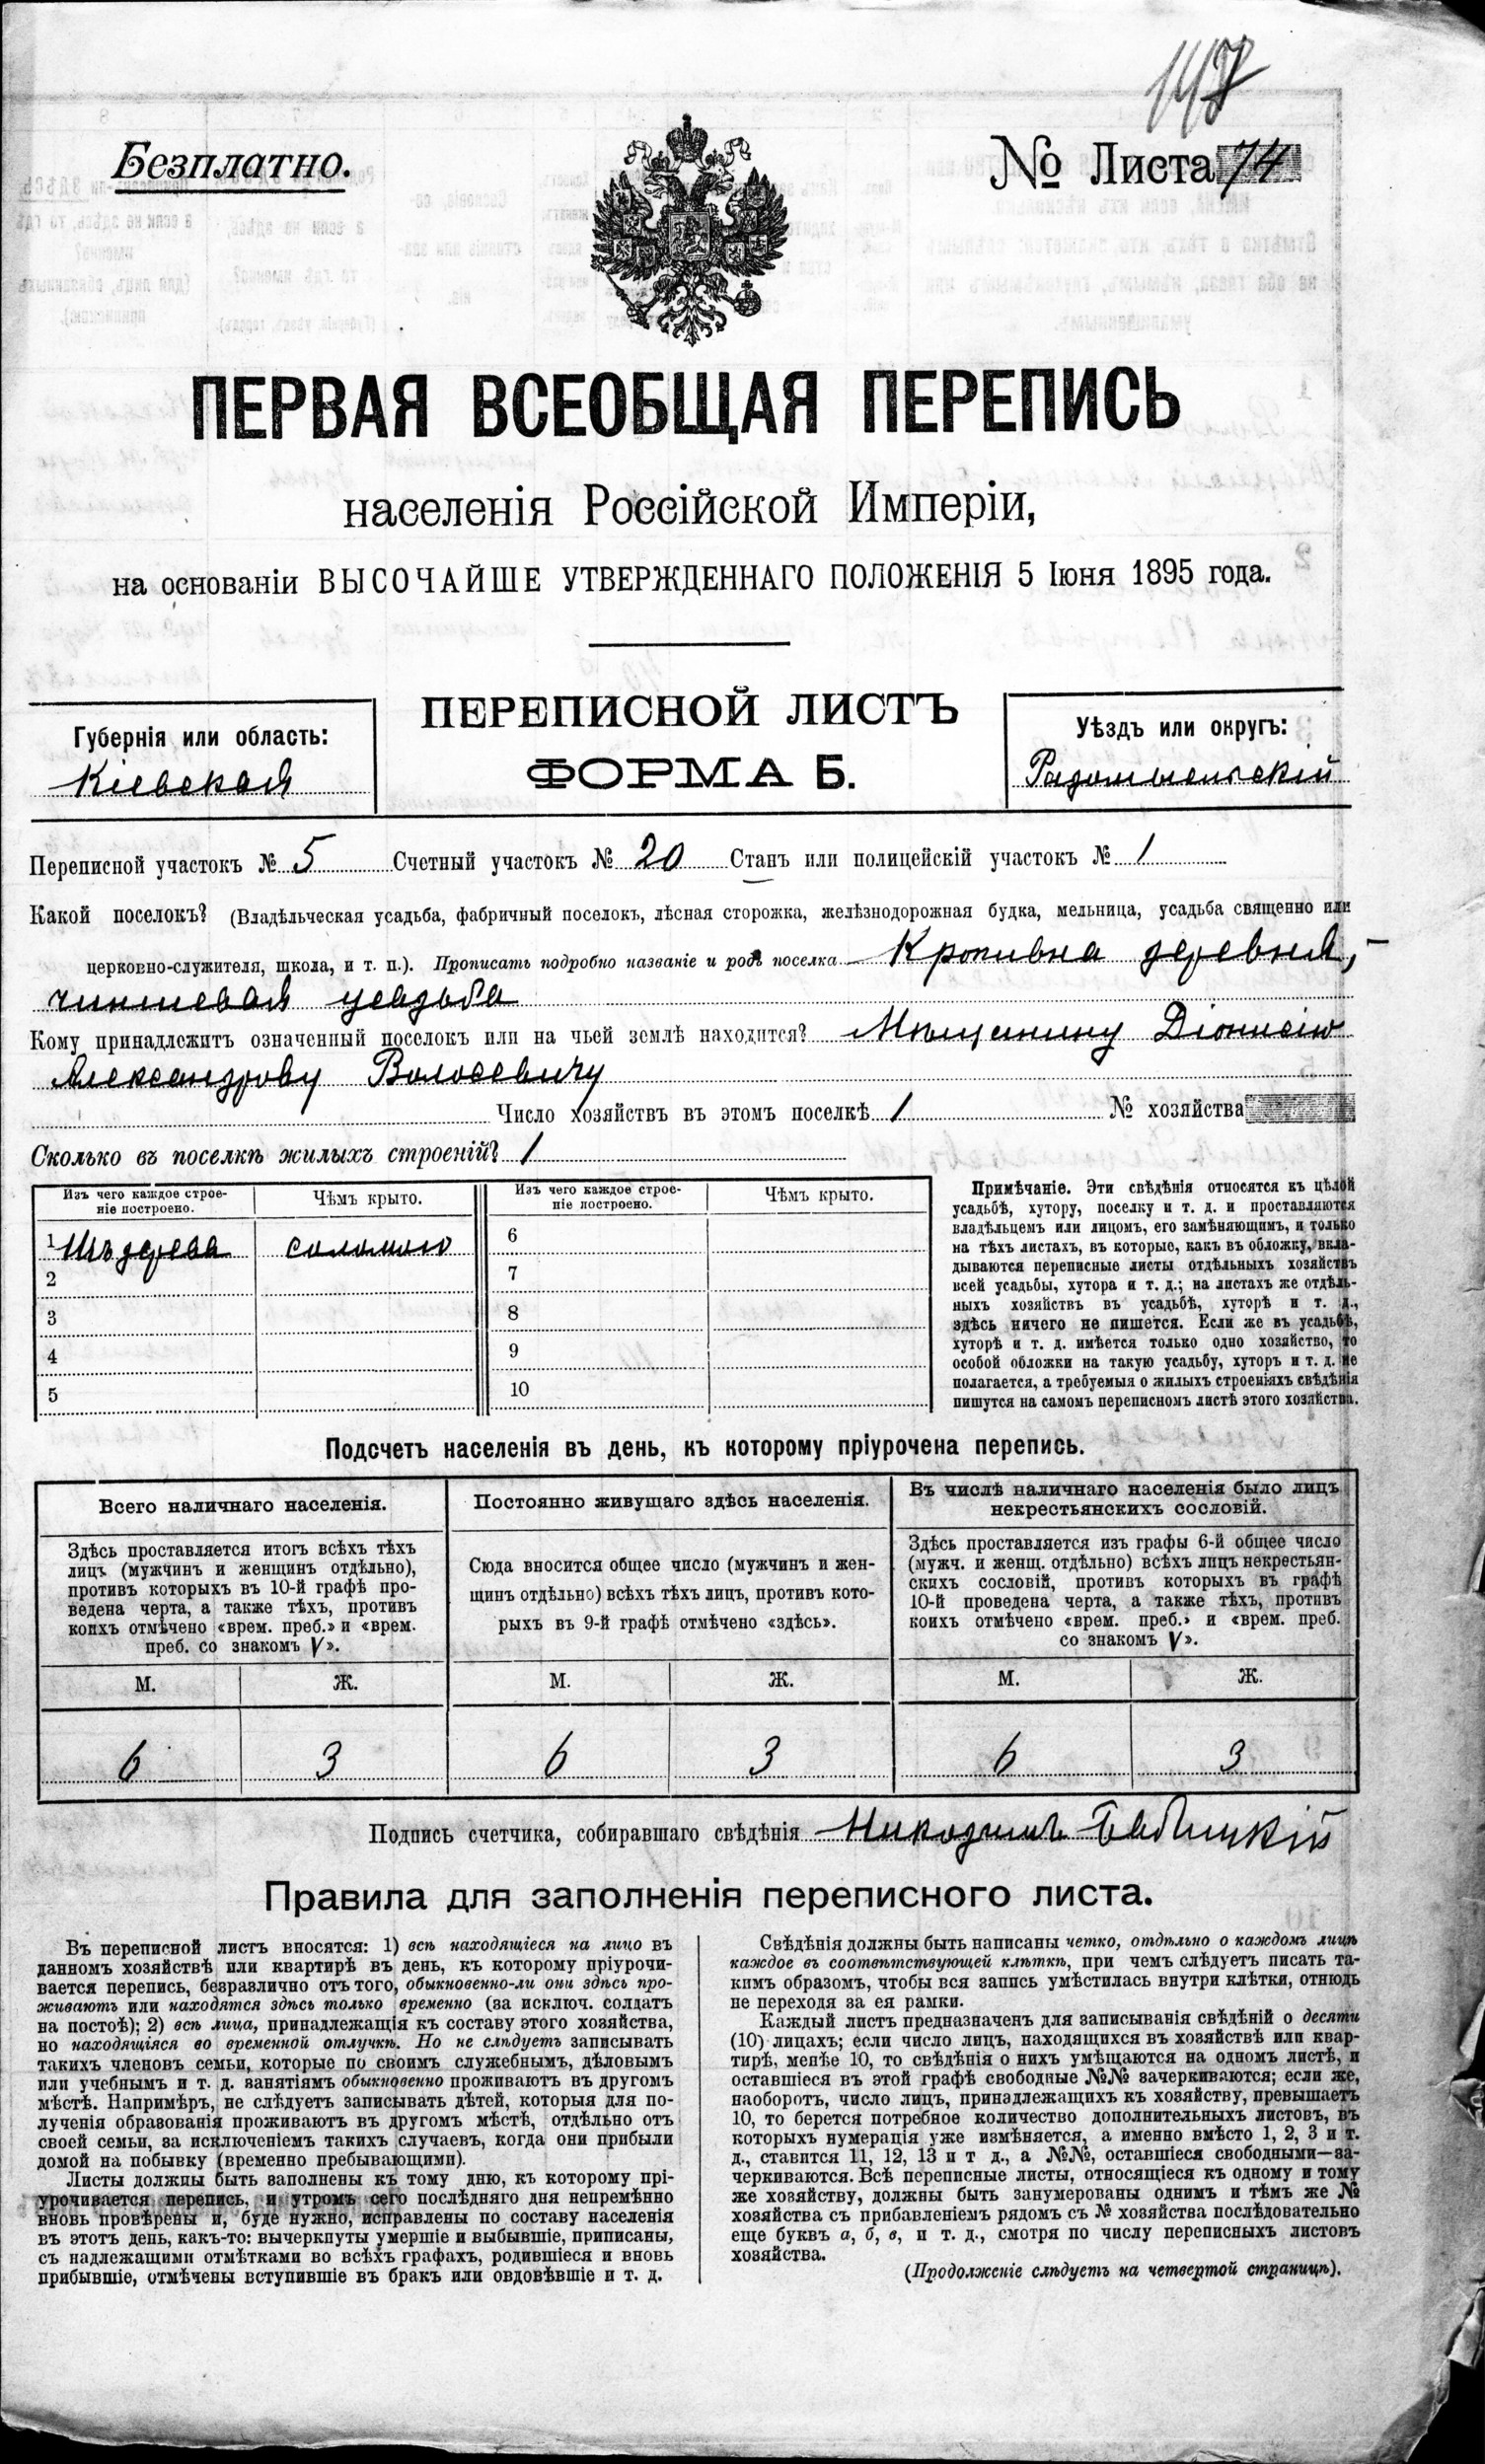 147
Безплатно.
№ Листа 74
ПЕРВАЯ ВСЕОБЩАЯ ПЕРЕПИСЬ
населенія Россійской Имперіи,
на основаніи ВЫСОЧАЙШЕ УТВЕРЖДЕННАГО ПОЛОЖЕНІЯ 5 Іюня 1895 года.
ПЕРЕПИСНОЙ ЛИСТЪ
ФОРМА Б.
Губернія или область:
Кіевская
Уѣздъ или округъ:
Радомысльскій
Переписной участокъ № 5 Счетный участокъ № 20 Станъ или полицейскій участокъ № 1
Какой поселокъ? (Владѣльческая усадьба, фабричный поселокъ, лѣсная сторожка, желѣзнодорожная будка, мельница, усадьба священно или
церковно-служителя, школа, и т. п.). Прописать подробно названіе и родъ поселка Кропивна деревня,
чиншевая усадьба
Кому принадлежитъ означенный поселокъ или на чьей землѣ находится? Мѣщанину Діонисію
Александрову Волосевичу
Число хозяйствъ въ этомъ поселкѣ 1 № хозяйства
Сколько въ поселкѣ жилыхъ строеній? 1
Изъ чего каждое строе-
ніе построено.
Чѣмъ крыто.
Изъ чего каждое строе-
ніе построено.
Чѣмъ крыто.
1 Изъ дерева соломою
2
3
4
5
6
7
8
9
10
Примѣчаніе. Эти свѣдѣнія относятся къ цѣлой
усадьбѣ, хутору, поселку и т. д. и проставляются
владѣльцемъ или лицомъ, его замѣняющимъ, и только
на тѣхъ листахъ, въ которые, какъ въ обложку, вкла-
дываются переписные листы отдѣльныхъ хозяйствъ
всей усадьбы, хутора и т. д.; на листахъ же отдѣль-
ныхъ хозяйствъ въ усадьбѣ, хуторѣ и т. д.,
здѣсь ничего не пишется. Если же въ усадьбѣ,
хуторѣ и т. д. имѣется только одно хозяйство, то
особой обложки на такую усадьбу, хуторъ и т. д. не
полагается, а требуемыя о жилыхъ строеніяхъ свѣдѣнія
пишутся на самомъ переписномъ листѣ этого хозяйства.
Подсчетъ населенія въ день, къ которому пріурочена перепись.
Всего наличнаго населенія.
Здѣсь проставляется итогъ всѣхъ тѣхъ
лицъ (мужчинъ и женщинъ отдѣльно),
противъ которыхъ въ 10-й графѣ про-
ведена черта, а также тѣхъ, противъ
коихъ отмѣчено «врем. преб.» и «врем.
преб. со знакомъ V».
М. Ж.
6 3
Постоянно живущаго здѣсь населенія.
Сюда вносится общее число (мужчинъ и жен-
щинъ отдѣльно) всѣхъ тѣхъ лицъ, противъ кото-
рыхъ въ 9-й графѣ отмѣчено «здѣсь».
М. Ж.
6 3
Въ числѣ наличнаго населенія было лицъ
некрестьянскихъ сословій.
Здѣсь проставляется изъ графы 6-й общее число
(мужч. и женщ. отдѣльно) всѣхъ лицъ некрестьян-
скихъ сословій, противъ которыхъ въ графѣ
10-й проведена черта, а также тѣхъ, противъ
коихъ отмѣчено «врем. преб.» и «врем. преб.
со знакомъ V».
М. Ж.
6 3
Подпись счетчика, собиравшаго свѣдѣнія Никодимъ Бабицкій
Правила для заполненія переписного листа.
Въ переписной листъ вносятся: 1) всѣ находящіеся на лицо въ
данномъ хозяйствѣ или квартирѣ въ день, къ которому пріурочи-
вается перепись, безразлично отъ того, обыкновенно-ли они здѣсь про-
живаютъ или находятся здѣсь только временно (за исключ. солдатъ
на постоѣ); 2) всѣ лица, принадлежащія къ составу этого хозяйства,
но находящіяся во временной отлучкѣ. Но не слѣдуетъ записывать
такихъ членовъ семьи, которые по своимъ служебнымъ, дѣловымъ
или учебнымъ и т. д. занятіямъ обыкновенно проживаютъ въ другомъ
мѣстѣ. Напримѣръ, не слѣдуетъ записывать дѣтей, которыя для по-
лученія образованія проживаютъ въ другомъ мѣстѣ, отдѣльно отъ
своей семьи, за исключеніемъ такихъ случаевъ, когда они прибыли
домой на побывку (временно пребывающими).
Листы должны быть заполнены къ тому дню, къ которому прі-
урочивается перепись, и утромъ сего послѣдняго дня непремѣнно
вновь провѣрены и, буде нужно, исправлены по составу населенія
въ этотъ день, какъ-то: вычеркнуты умершіе и выбывшіе, приписаны,
съ надлежащими отмѣтками во всѣхъ графахъ, родившіеся и вновь
прибывшіе, отмѣчены вступившіе въ бракъ или овдовѣвшіе и т. д.
Свѣдѣнія должны быть написаны четко, отдѣльно о каждомъ лицѣ
каждое въ соотвѣтствующей клѣткѣ, при чемъ слѣдуетъ писать та-
кимъ образомъ, чтобы вся запись умѣстилась внутри клѣтки, отнюдь
не переходя за ея рамки.
Каждый листъ предназначенъ для записыванія свѣдѣній о десяти
(10) лицахъ; если число лицъ, находящихся въ хозяйствѣ или квар-
тирѣ, менѣе 10, то свѣдѣнія о нихъ умѣщаются на одномъ листѣ, и
оставшіеся въ этой графѣ свободные №№ зачеркиваются; если же,
наоборотъ, число лицъ, принадлежащихъ къ хозяйству, превышаетъ
10, то берется потребное количество дополнительныхъ листовъ, въ
которыхъ нумерація уже измѣняется, а именно вмѣсто 1, 2, 3 и т.
д., ставится 11, 12, 13 и т д., а №№, оставшіеся свободными—за-
черкиваются. Всѣ переписные листы, относящіеся къ одному и тому
же хозяйству, должны быть занумерованы однимъ и тѣмъ же №
хозяйства съ прибавленіемъ рядомъ съ № хозяйства послѣдовательно
еще буквъ а, б, в, и т. д., смотря по числу переписныхъ листовъ
хозяйства.
(Продолженіе слѣдуетъ на четвертой страницѣ).